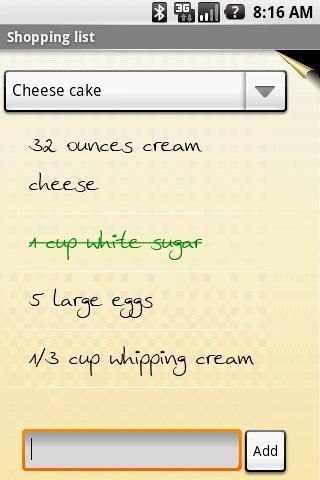 8:16 AM
Shopping list
Cheese cake
32 ounces cream
cheese
1 cup white sugar
5 large eggs
1/3 cup whipping cream
Add